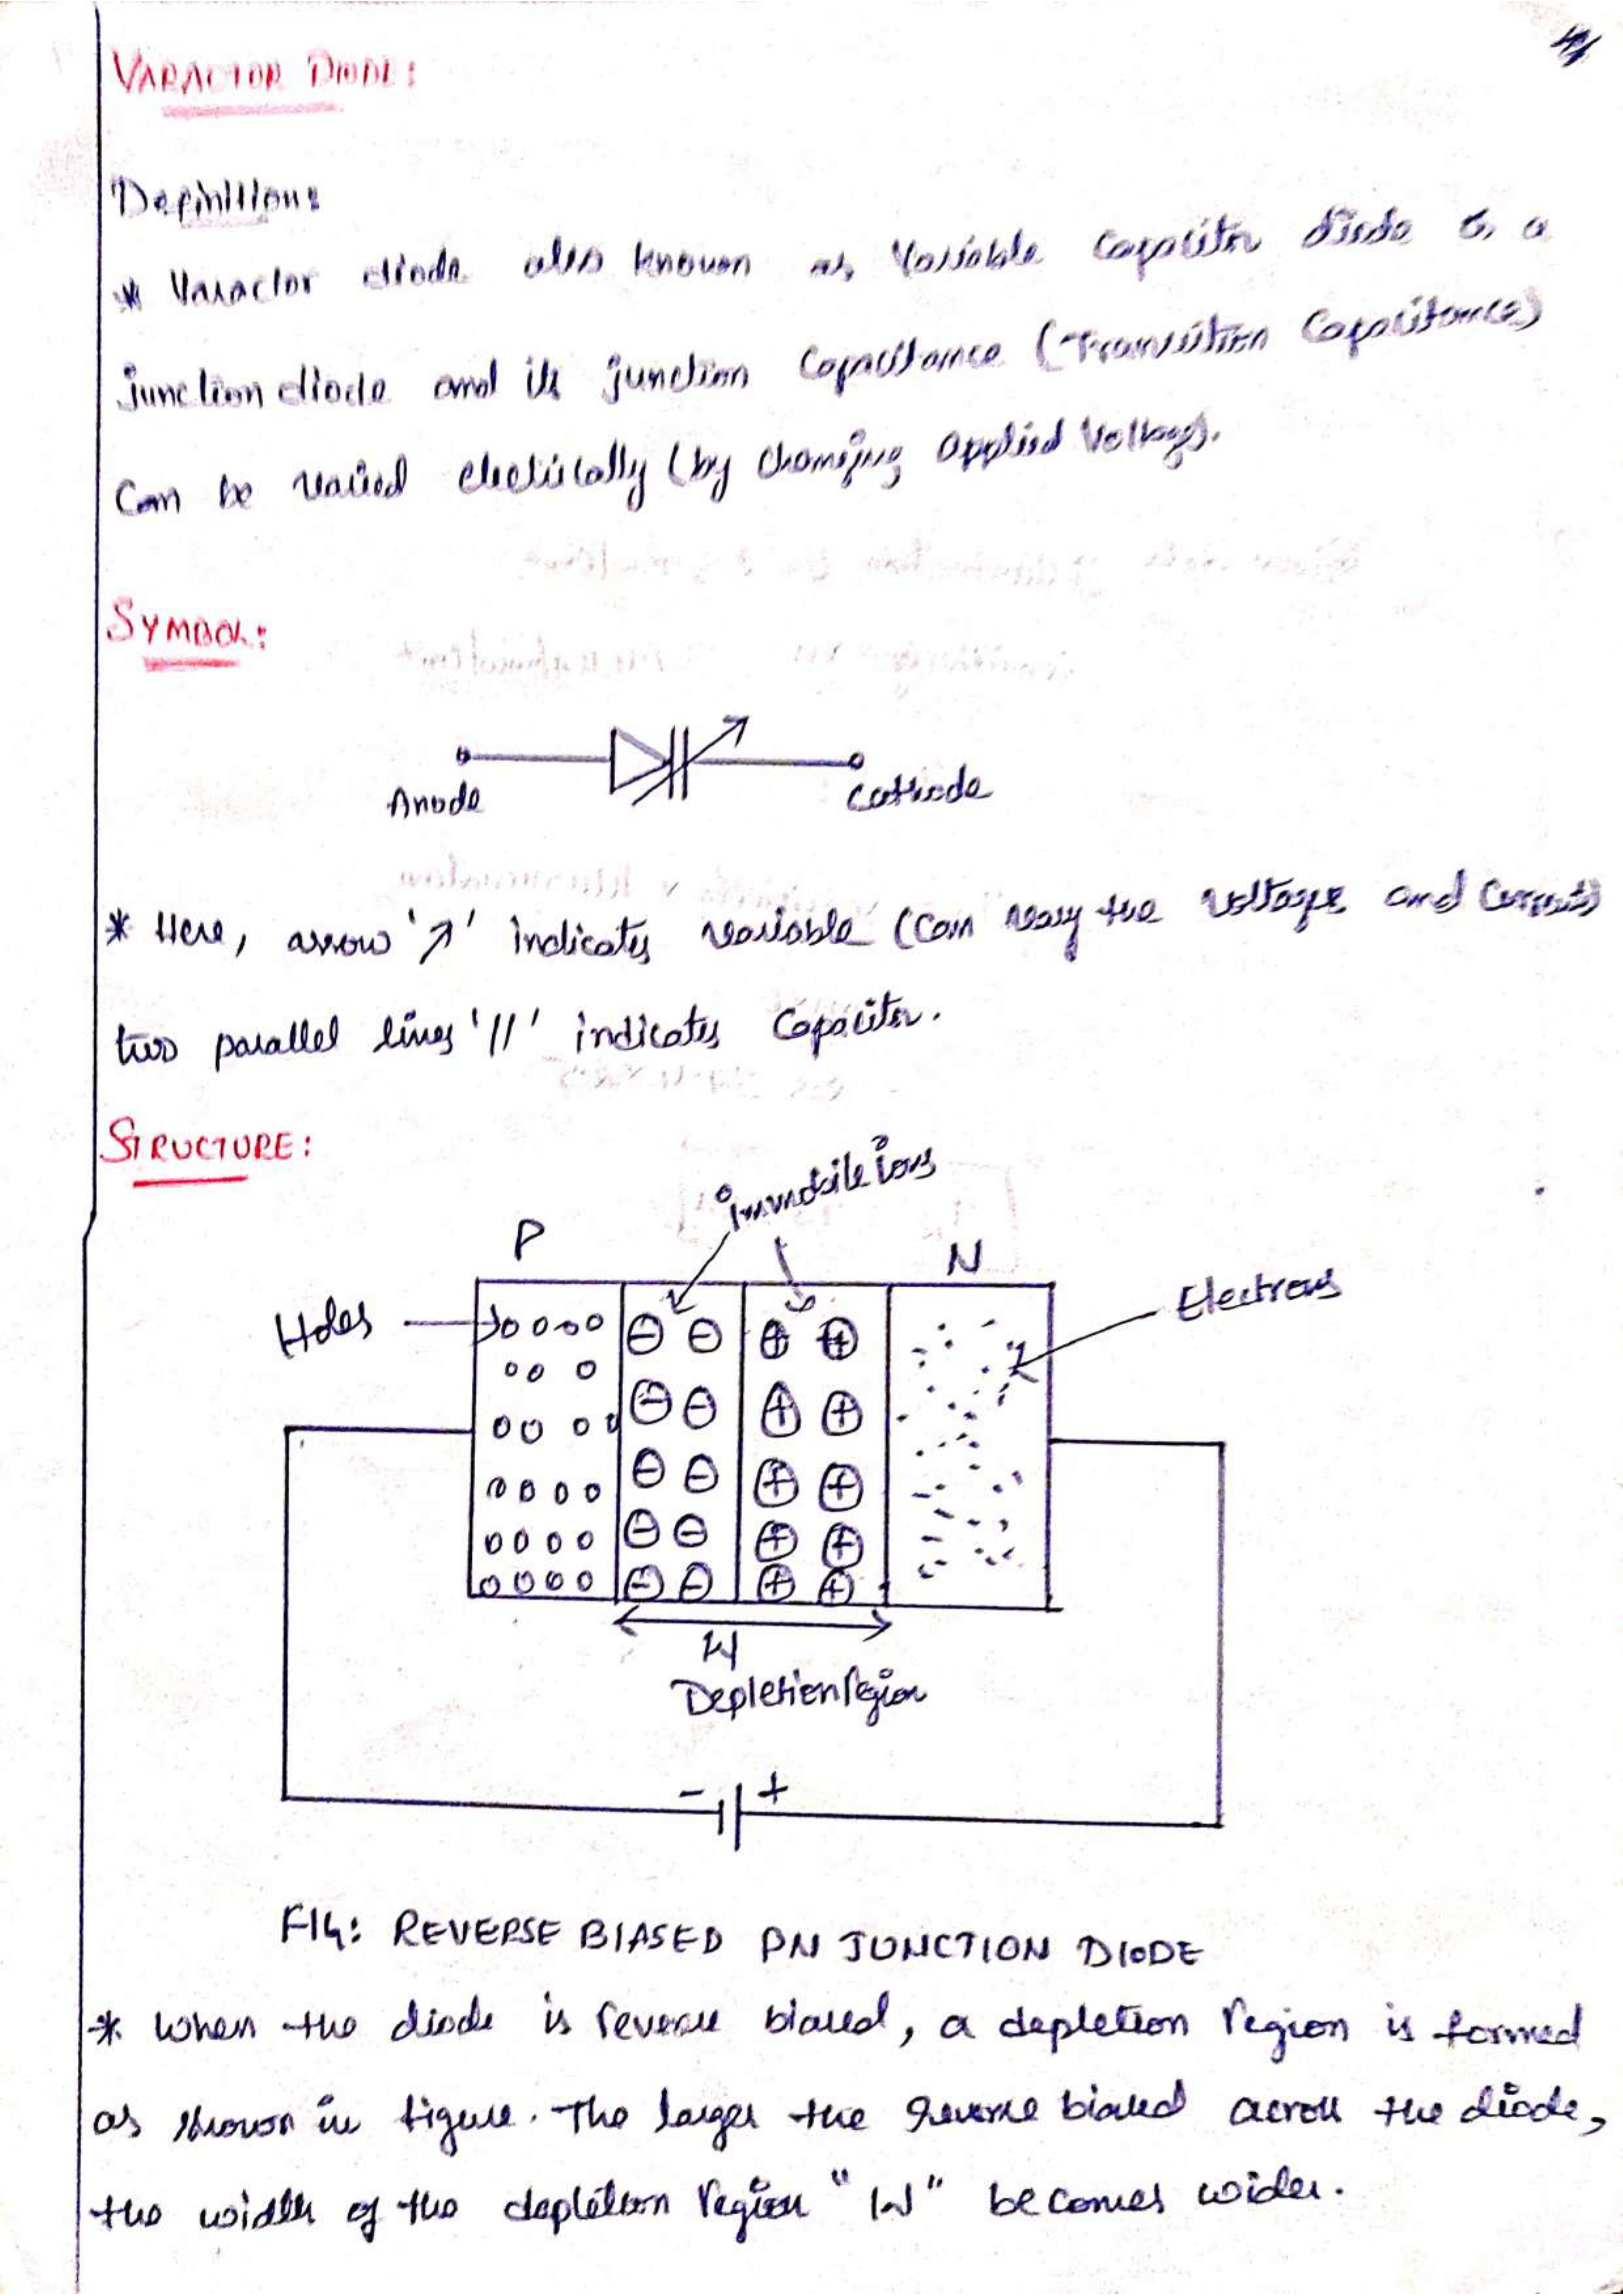 VARACTOR DIODE:
Definition:
* Varactor diode also known as Variable Capacitor diode is a
junction diode and its junction Capacitance (Transition Capacitance)
Can be varied electrically (by changing applied Voltage).
SYMBOL:
Anode
Cathode
* Here, arrow '↗' indicates variable (can vary the voltage and current)
two parallel lines '//' indicates Capacitor.
STRUCTURE:
immobile ions
P
N
Holes
Electrons
W
Depletion region
- +
FIG: REVERSE BIASED PN JUNCTION DIODE
* When the diode is reverse biased, a depletion region is formed
as shown in figure. The larger the reverse biased across the diode,
the width of the depletion region "W" becomes wider.